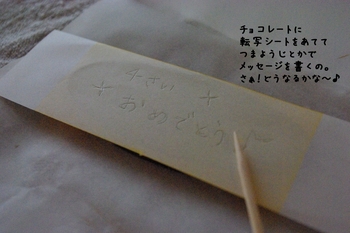 チョコレートに
転写シートをあてて
つまようじとかで
メッセージを書くの。
さぁ!どうなるかな〜♪
才さい
おめでとう♪